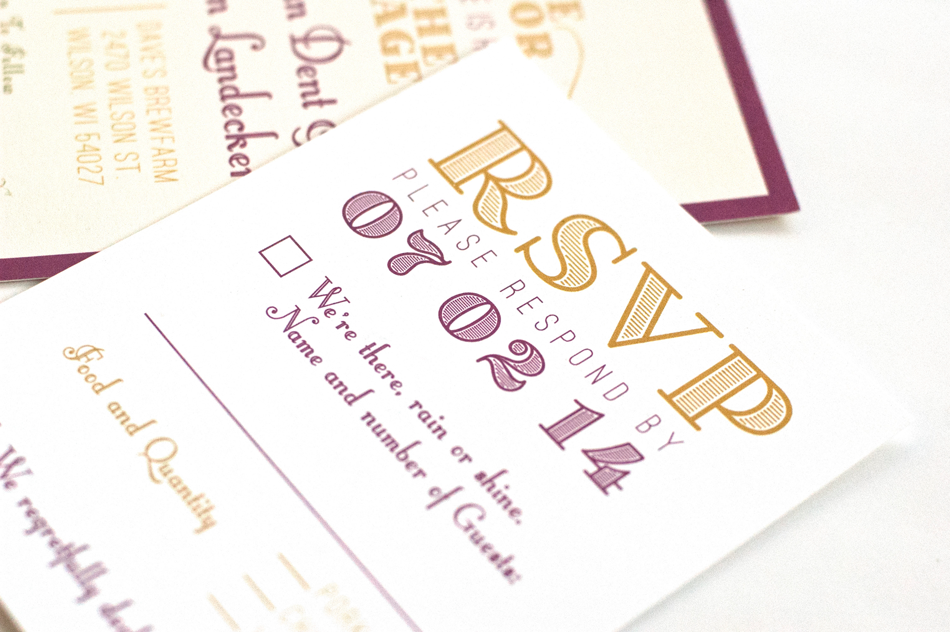 RSVP
PLEASE RESPOND BY
07 02 14
We're there, rain or shine.
Name and number of Guests:
Food and Quantity
We regretfully
OR
THE
Dent
Landecker
DAVE'S BREWFARM
2470 WILSON ST
WILSON WI 54027